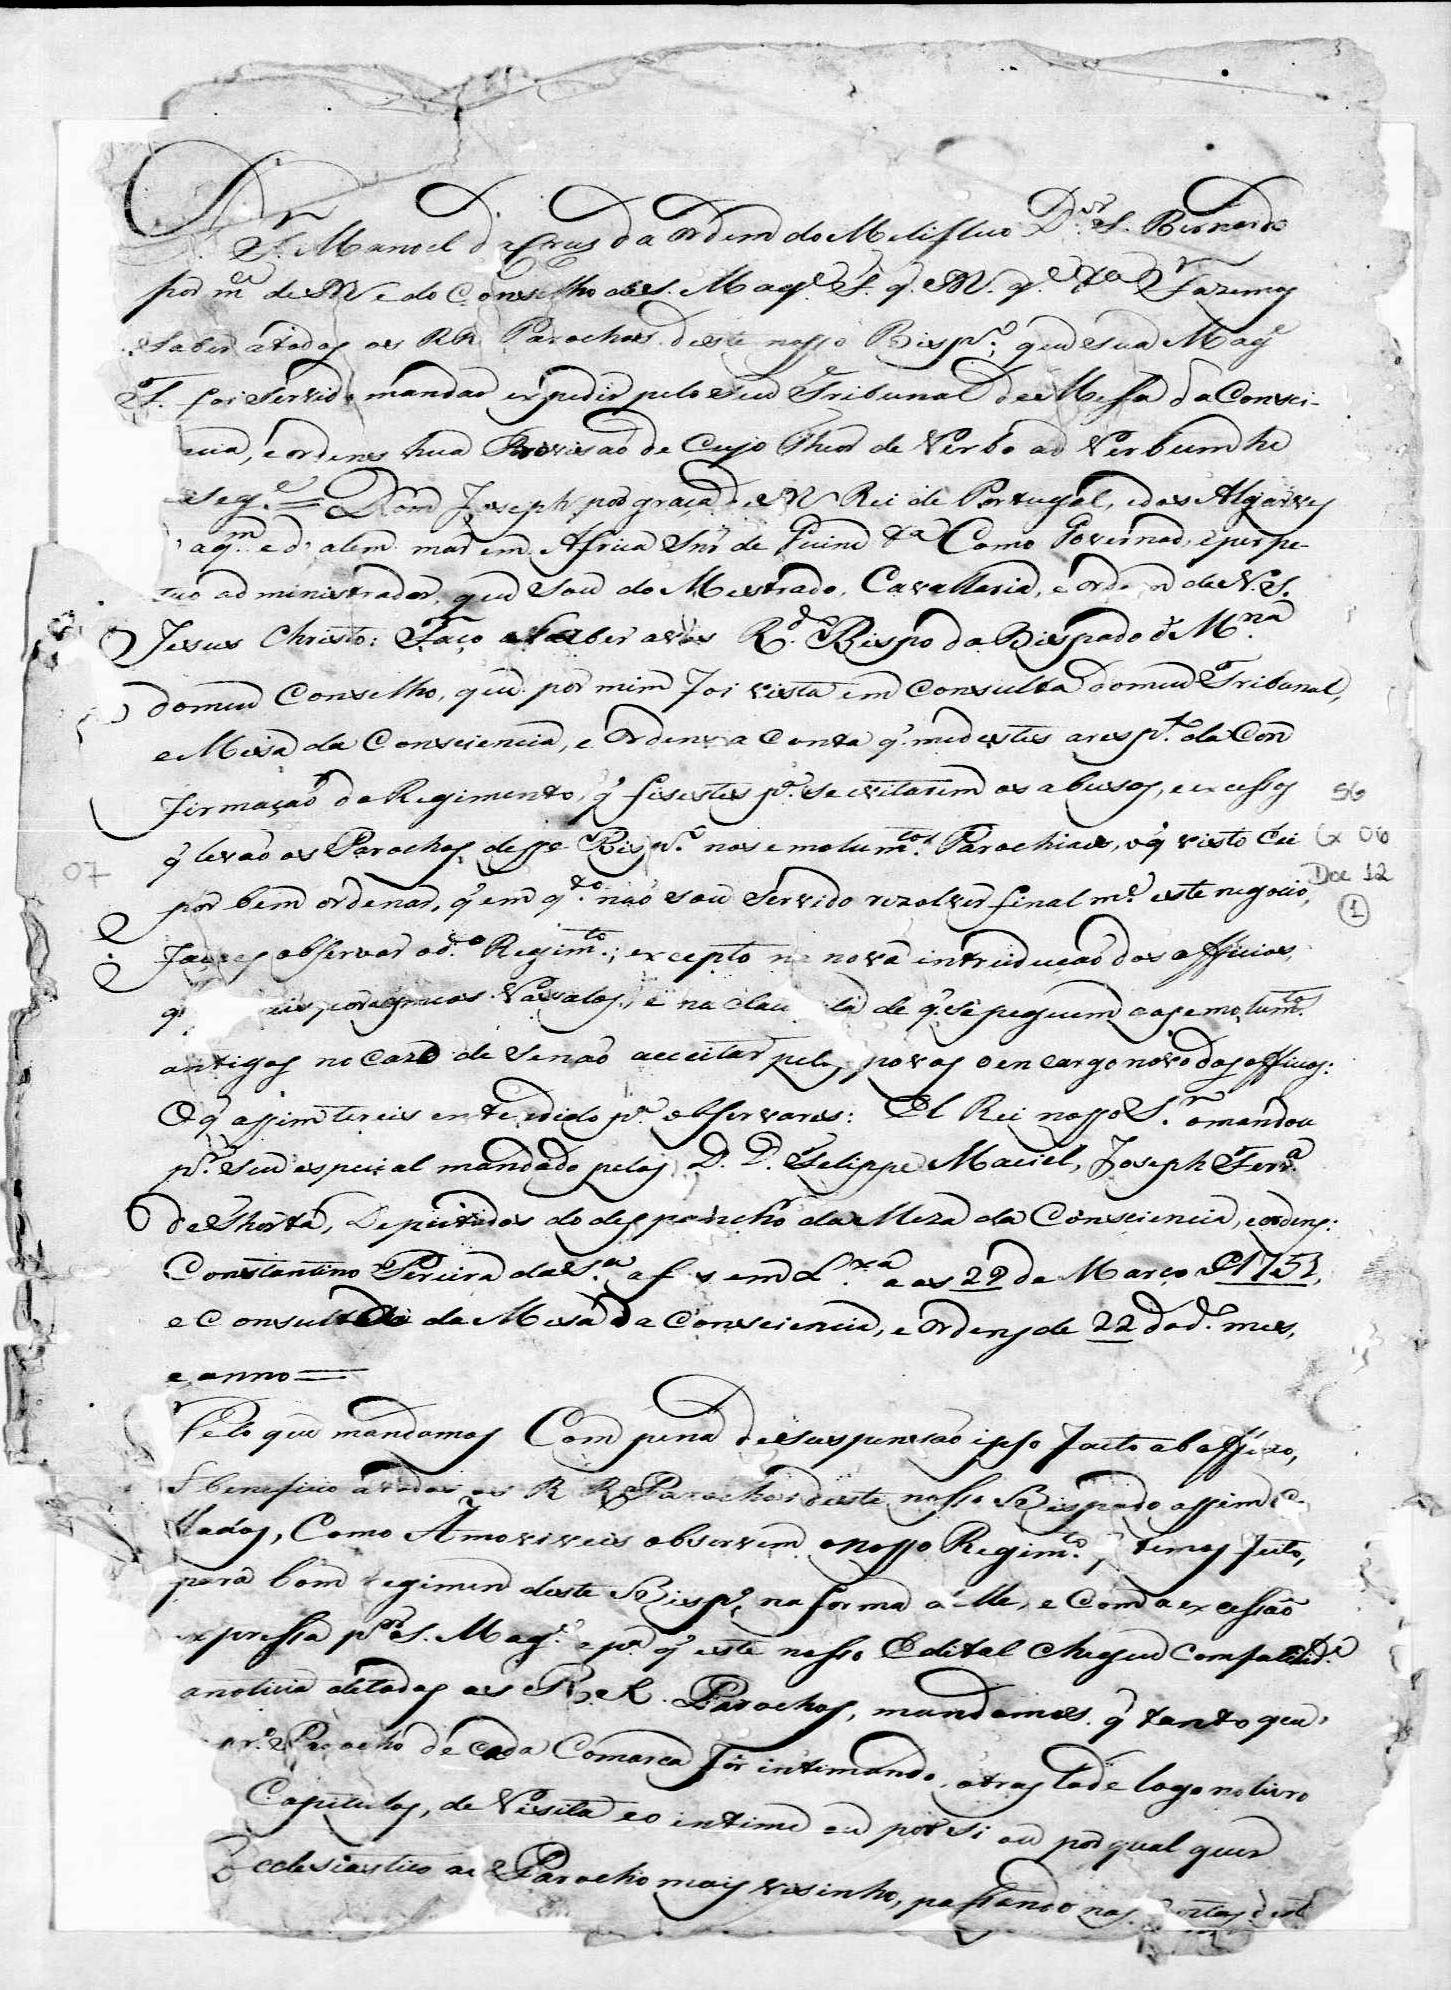 D. Fr. Manoel da Crus da Ordem do Melifluo D.or S. Bernardo
por m.ce de D.s e do Conselho de S. Mag.e F. q. D.s g.e &.a Fazemos
saber a todos os RR. Parochos deste nosso Bisp.o, que sua Mag.e
F. foi servido mandar expedir pelo seu Tribunal da Messa da Consci-
encia, e ordens hua Provisaõ de cujo theor de Verbo ad Verbum he
o seg.e = Dom Joseph por graça de D.s Rei de Portugal, e dos Algarves
daq.m e d'alem mar em Africa Snr de Guine &.a Como Governad.or, e perpe-
tuo administrador, que sou do Mestrado, Cavallaria, e Ordem de N. S.
Jesus Christo: Faço a saber a vos R.do Bispo do Bispado de M.na
do meu Conselho, que por mim foi vista em Consulta do meu Tribunal,
e Mesa da Consciencia, e Ordens a Conta q. me destes a resp.to da Con
firmaçaõ do Regimento, q̃ fisestes p.a se evitarem os abusos, e excessos
q̃ levaõ os Parochos desse Bisp.o nos emolum.tos Parochiaes, o q̃ visto Eu
por bem ordenar, q̃ em q.to naõ sou servido rezolver final m.e este negocio,
façaes observar o d.o Regim.to; excepto na nova introducçaõ dos officios
q meus Vassalos, e na clau la de q. se peguem aos emolum.tos
antigos no cazo de se naõ aceitar pelos povos o encargo novo dos officios:
O q̃ assim tereis entendido p.a observares: El Rei nosso S.r o mandou
p.r seu especial mandado pelos D. D. Felippe Maciel, Joseph Ferr.a
de Horta, Deputados do despancho da Meza da Consciencia, e ordens:
Constantino Pereira da S.a a fes em L.xa aos 29 de Março de 1751,
e Consulta da Mesa da Consciencia, e Ordens de 22 do d.o mes,
e anno =
Pelo que mandamos Com pena de suspensaõ ipso facto ab officio,
et beneficio a todos os RR. Parochos deste nosso Bispado assim Co-
llados, Como Amoviveis observem o nosso Regim.to q̃ temos feito,
para bom regimen deste Bisp.o, na forma d'elle, e com a excessaõ
expressa p.r S. Mag.e e p.a q̃ este nosso Edital chegue com facilid.e
a noticia de todos os R.R. Parochos, mandamos q̃ tanto que o
pr.o Parocho de cada Comarca for intimando, o traslade logo no livro
Capitulos, de Visita e o intime ou por si ou por qual quer
Ecclesiastico ao Parocho mais vesinho, passando nas costas deste
07
56
Cx 06
Doc 12
1